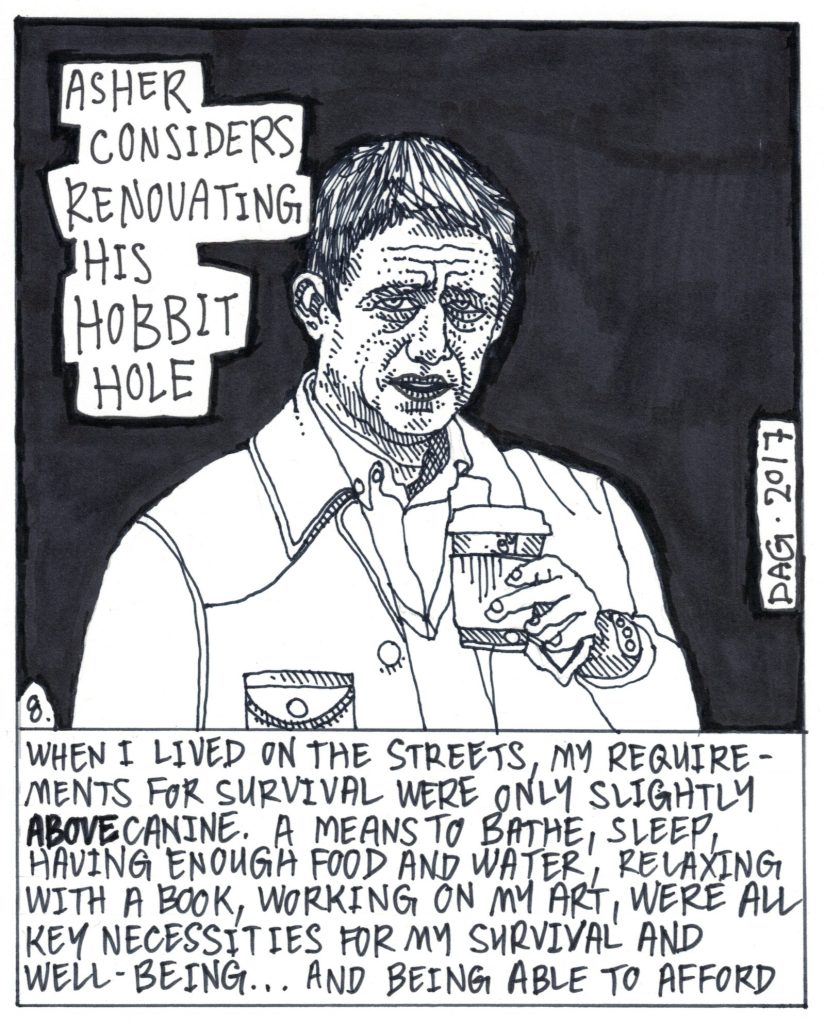 ASHER
CONSIDERS
RENOVATING
HIS
HOBBIT
HOLE
DAG · 2017
8.
WHEN I LIVED ON THE STREETS, MY REQUIRE-
MENTS FOR SURVIVAL WERE ONLY SLIGHTLY
ABOVE CANINE. A MEANS TO BATHE, SLEEP,
HAVING ENOUGH FOOD AND WATER, RELAXING
WITH A BOOK, WORKING ON MY ART, WERE ALL
KEY NECESSITIES FOR MY SURVIVAL AND
WELL-BEING... AND BEING ABLE TO AFFORD